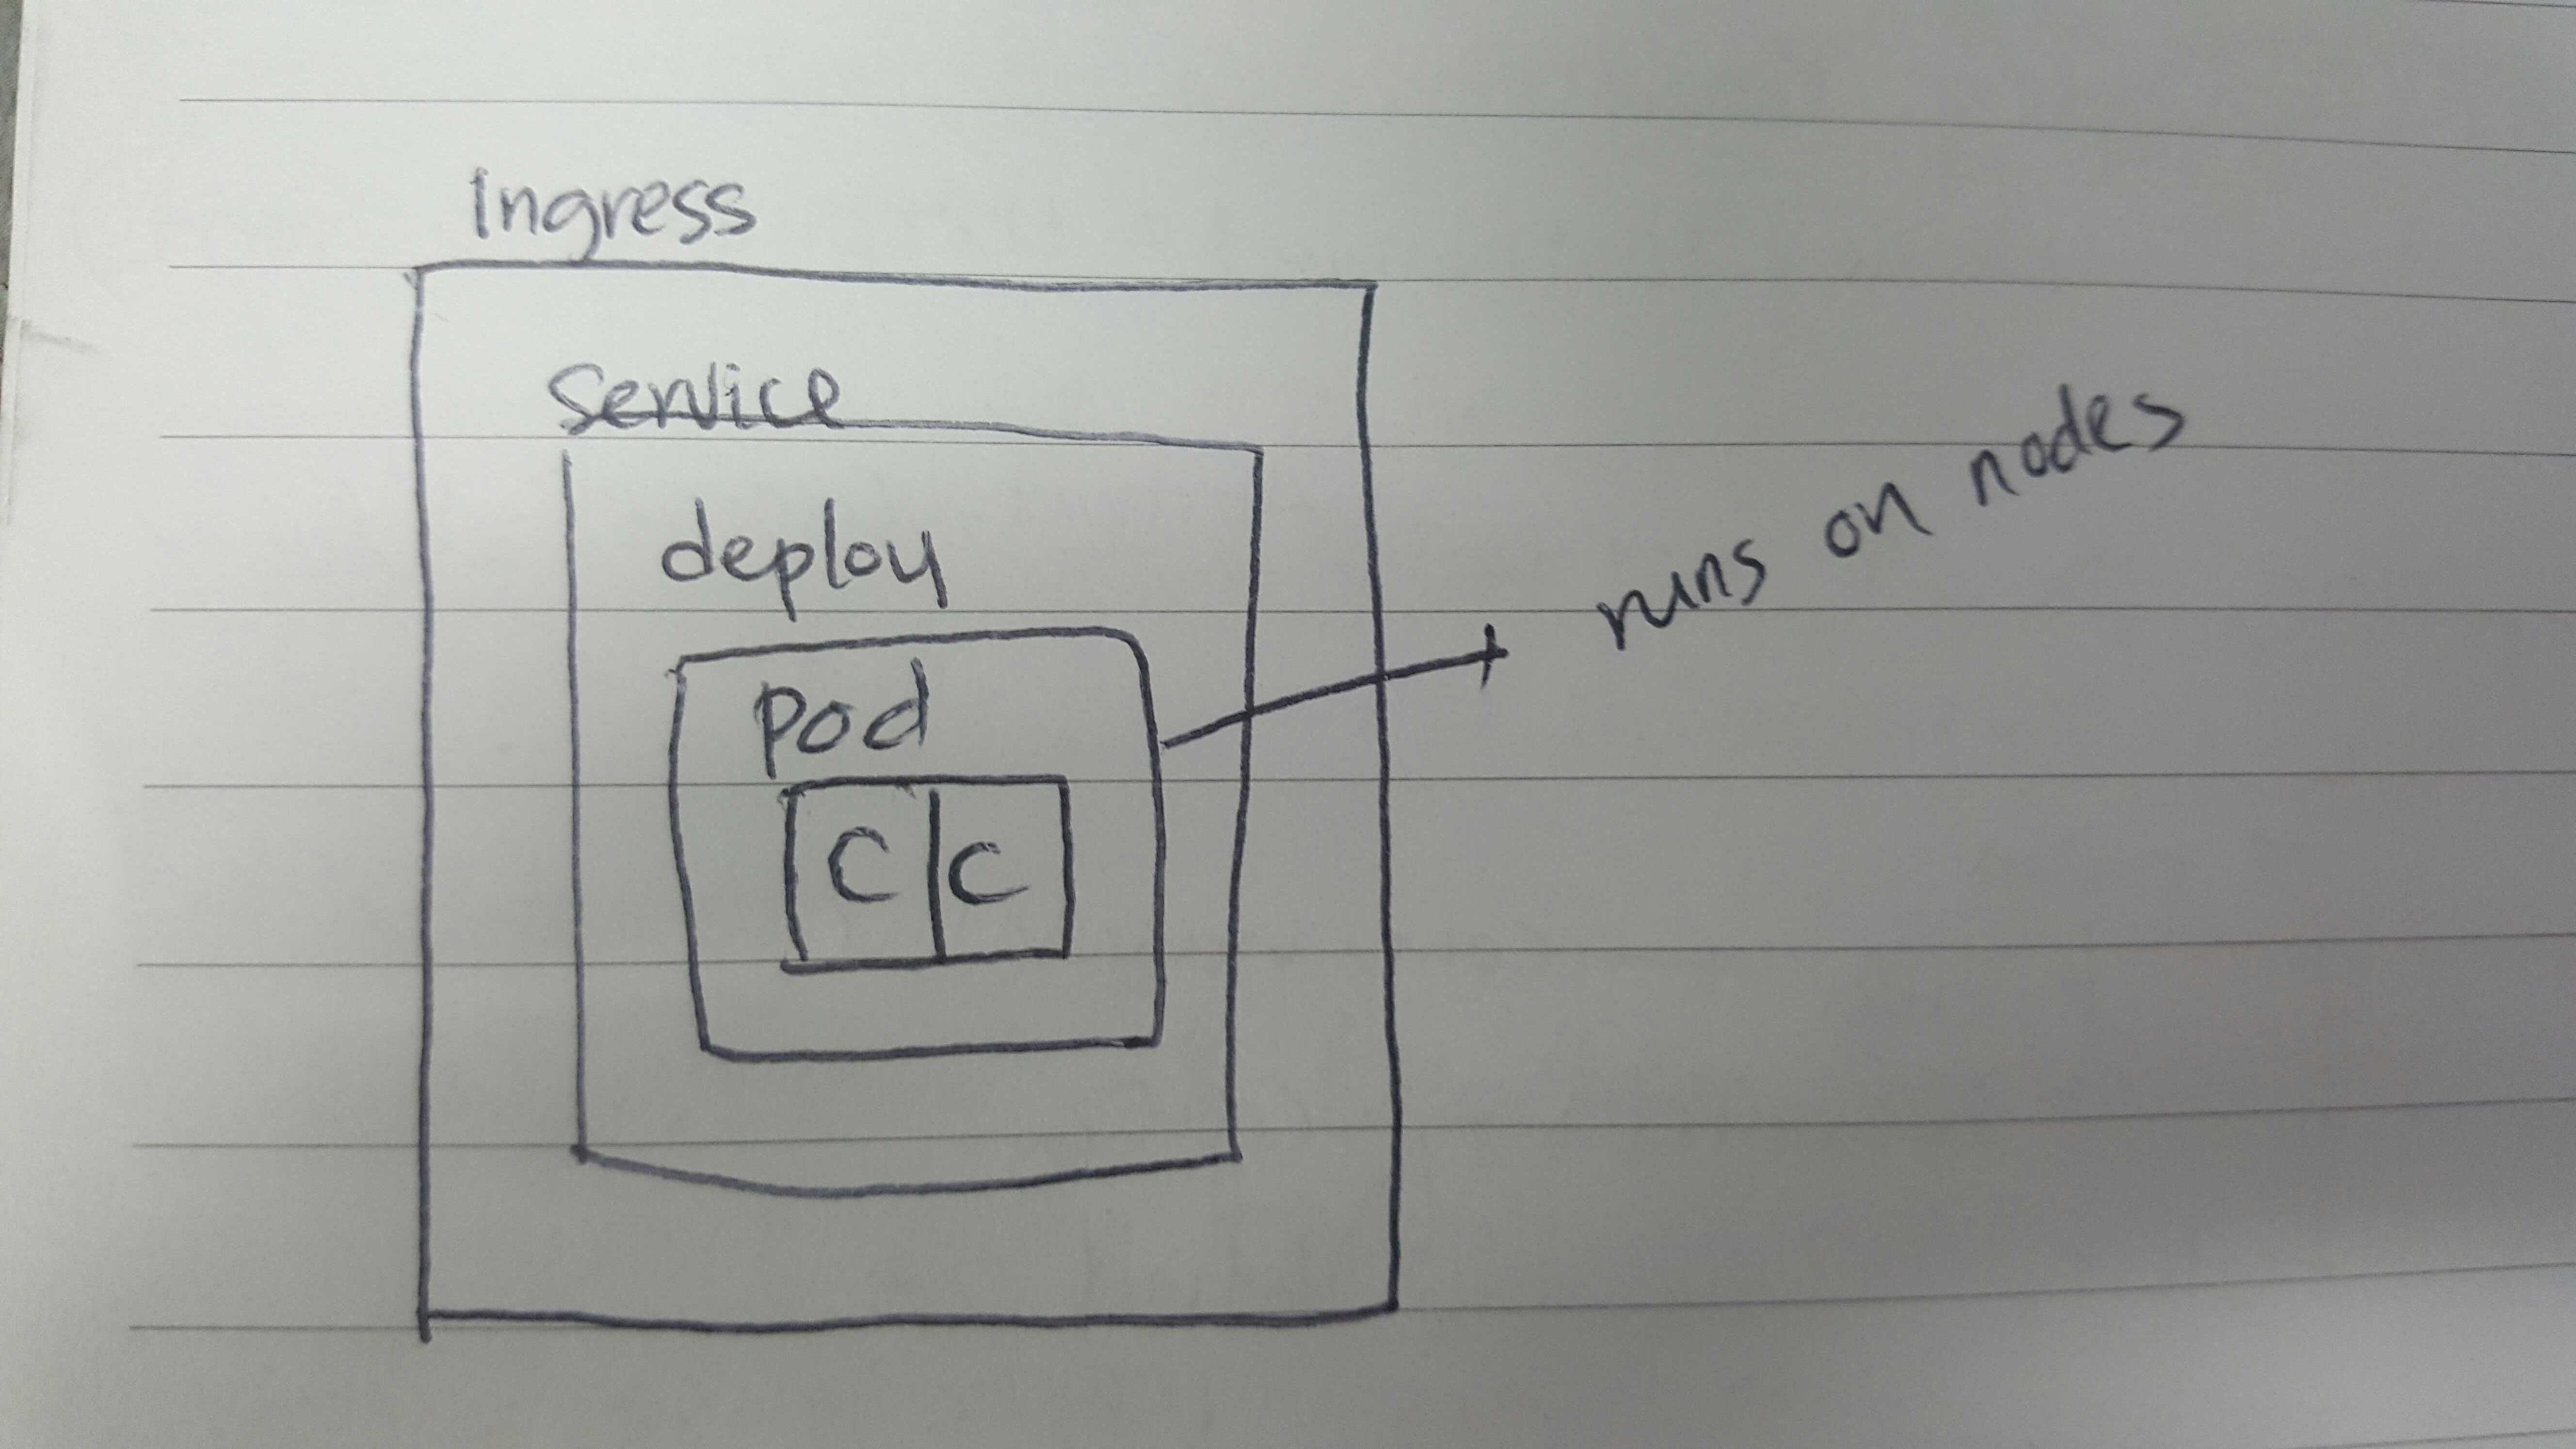 Ingress
Service
deploy
pod
C C
runs on nodes